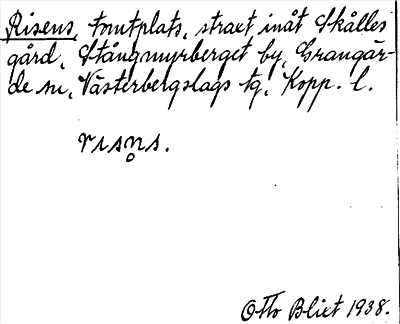 Risens, tomtplats, straxt inåt Skålles
gård, Stångmyrberget by, Grangär-
de sn, Västerbergslags tg, Kopp. l.
rɩsn̥s.
Otto Blixt 1938.